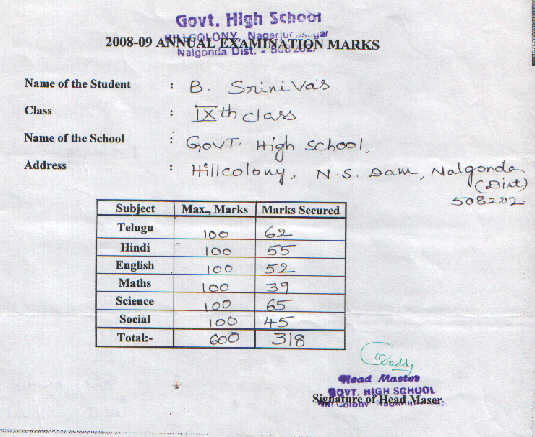 Govt. High School
HILLCOLONY, Nagarjunasagar
2008-09 ANNUAL EXAMINATION MARKS
Nalgonda Dist. - 508202
Name of the Student : B. Srinivas
Class : IXth class
Name of the School : GOVT. High School,
Address : Hillcolony, N.S. Dam, Nalgonda
(Dist)
508202
Subject Max., Marks Marks Secured
Telugu 100 62
Hindi 100 55
English 100 52
Maths 100 39
Science 100 65
Social 100 45
Total:- 600 318
Head Master
GOVT. HIGH SCHOOL
Signature of Head Maser
Hill Colony